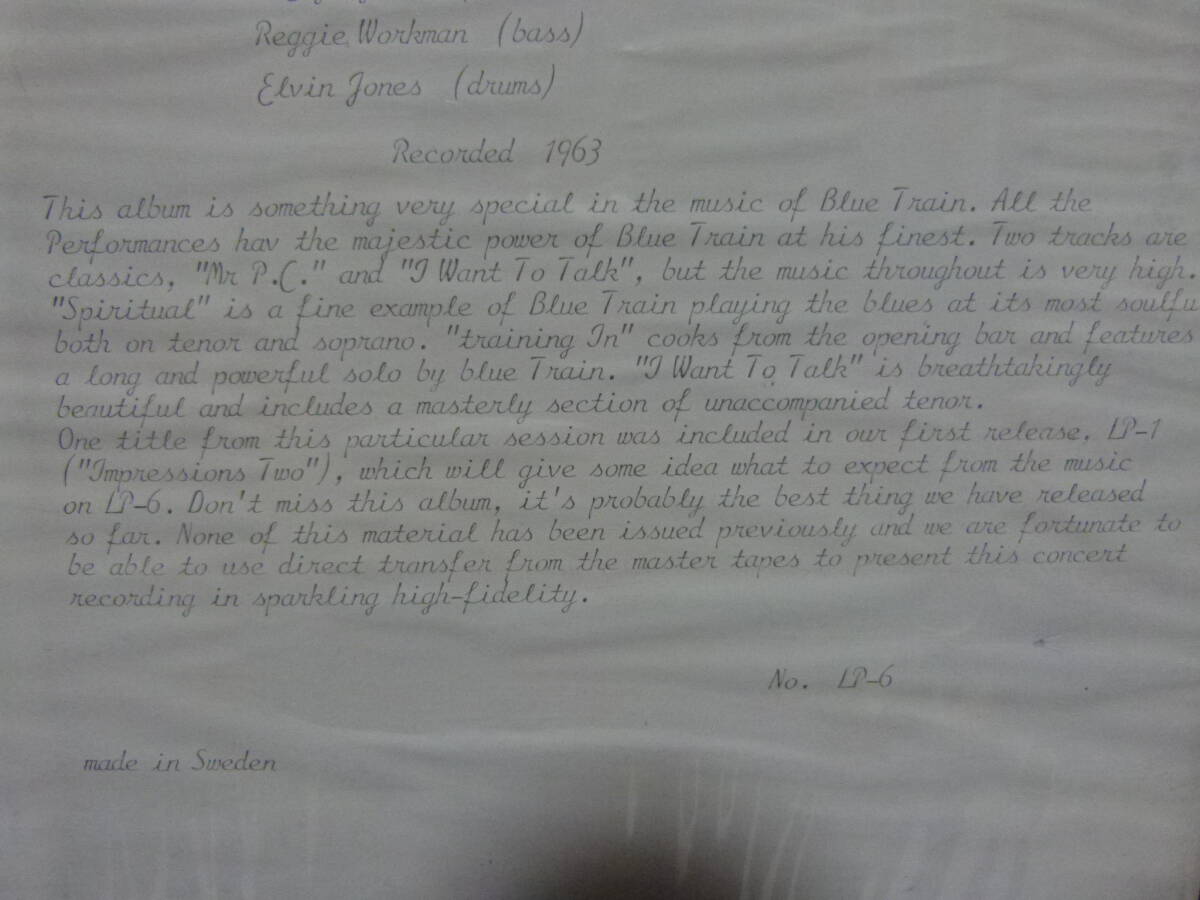 Reggie Workman (bass)
Elvin Jones (drums)
Recorded 1963
This album is something very special in the music of Blue Train. All the
Performances hav the majestic power of Blue Train at his finest. Two tracks are
classics, "Mr P.C." and "I Want To Talk", but the music throughout is very high.
"Spiritual" is a fine example of Blue Train playing the blues at its most soulfu
both on tenor and soprano. "training In" cooks from the opening bar and features
a long and powerful solo by blue Train. "I Want To Talk" is breathtakingly
beautiful and includes a masterly section of unaccompanied tenor.
One title from this particular session was included in our first release. LP-1
("Impressions Two"), which will give some idea what to expect from the music
on LP-6. Don't miss this album, it's probably the best thing we have released
so far. None of this material has been issued previously and we are fortunate to
be able to use direct transfer from the master tapes to present this concert
recording in sparkling high-fidelity.
No. LP-6
made in Sweden